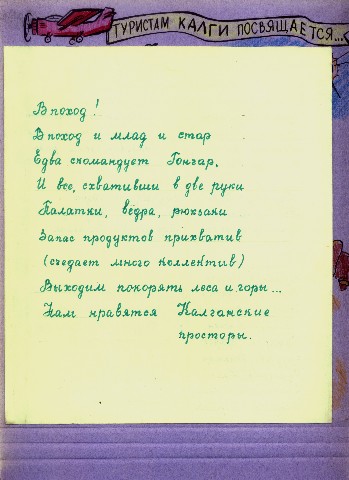 ТУРИСТАМ КАЛГИ ПОСВЯЩАЕТСЯ...
В поход!
В поход и млад и стар
Едва скомандует Гонгар.
И все, схвативши в две руки
Палатки, вёдра, рюкзаки
Запас продуктов прихватив
(съедает много коллектив)
Выходим покорять леса и горы...
Нам нравятся Калганские
просторы.